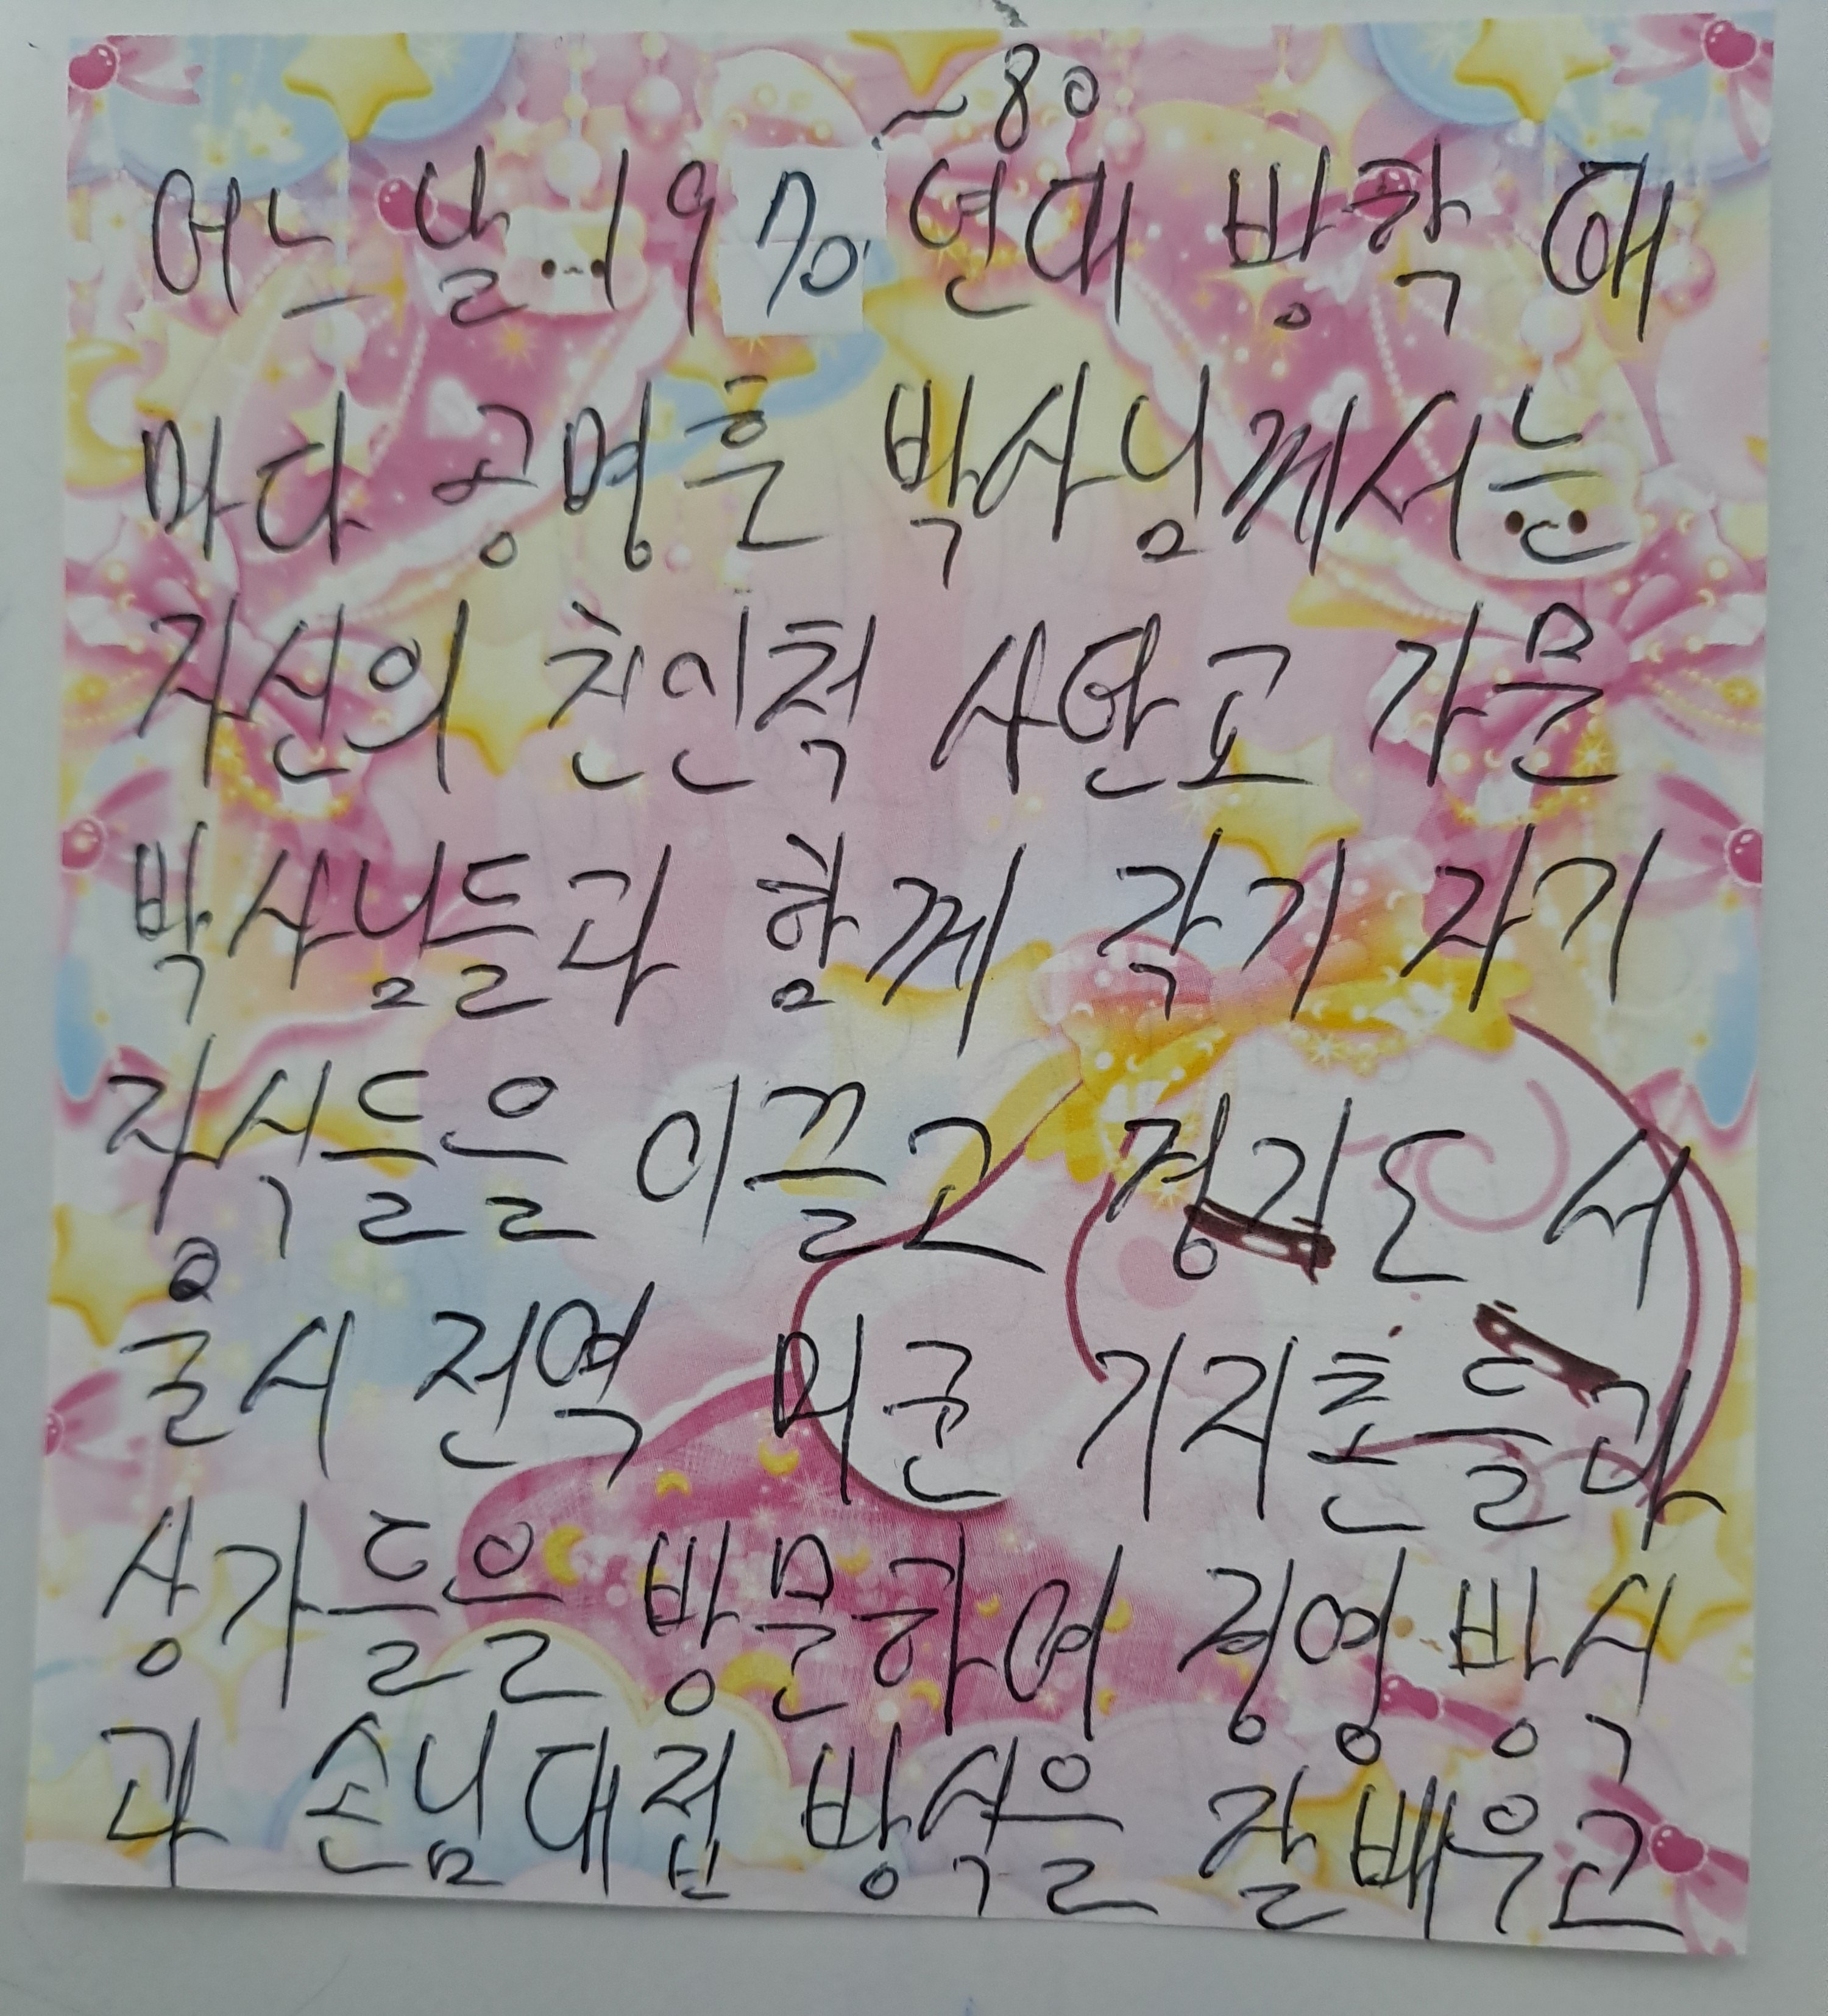 ~80
어느 날 1970년대 방학 때
마다 공명훈 박사님께서는
자신의 친인척 사단고 가문
박사님들과 함께 각기 자기
직식들을 이끌고 경기도 서
울시 전역 미군 기지촌들과
상가들을 방문하여 경영 방식
과 손님 대접 방식을 잘 배우고